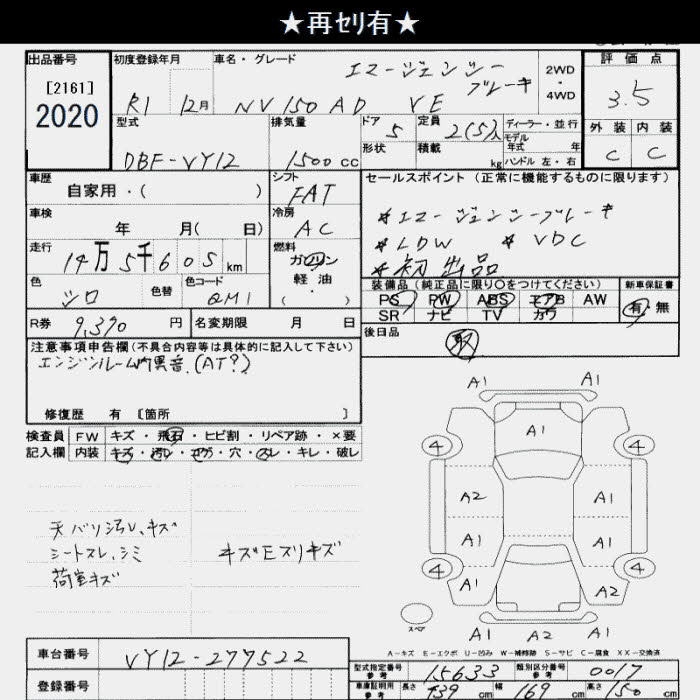 ★再ｾﾘ有★
出品番号 初度登録年月 車名・グレード 評価点
[2161]
2020
R1 12月 NV150 AD VE
エマージェンシーブレーキ
2WD・4WD
3.5
外装 内装
C C
型式 排気量 ドア 定員 ディーラー・並行
DBF-VY12 1500cc 5 2(5)人 モデル年式 年
形状 積載 kg ハンドル 左・右
車歴 シフト セールスポイント (正常に機能するものに限ります)
自家用・( ) FAT
車検 冷房
年 月( 日) AC
＊エマージェンシーブレーキ
＊LDW ＊VDC
＊初出品
走行 燃料
14万5千605km ガソリン・軽油・( )
色 色替 色コード
シロ QM1
装備品 (純正品に限り〇をつけてください) 新車保証書
PS PW ABS エアB AW 有・無
SR ナビ TV カワ
R券 9,390円 名変期限 月 日
後日品
取
注意事項申告欄 (不具合内容等は具体的に記入して下さい)
エンジンルーム内異音.(AT?)
修復歴 有 [箇所 ]
検査員 FW キズ・飛石・ヒビ割・リペア跡・×要
記入欄 内装 キズ・汚レ・コゲ・穴・スレ・キレ・破レ
天バリ汚レ、キズ
シートスレ、シミ キズモスリキズ
荷室キズ
A1 A1
A1
4 4
A2 A1
A1 A1
4 4
A1 A2
A1 A1
スペア
A-キズ E-エクボ U-凹み W-補修跡 S-サビ C-腐食 XX-交換済
車台番号 VY12-277522
登録番号
型式指定番号 参考 15633 類別区分番号 参考 0017
車庫証明用 参考 長さ 439cm 幅 169cm 高さ 150cm